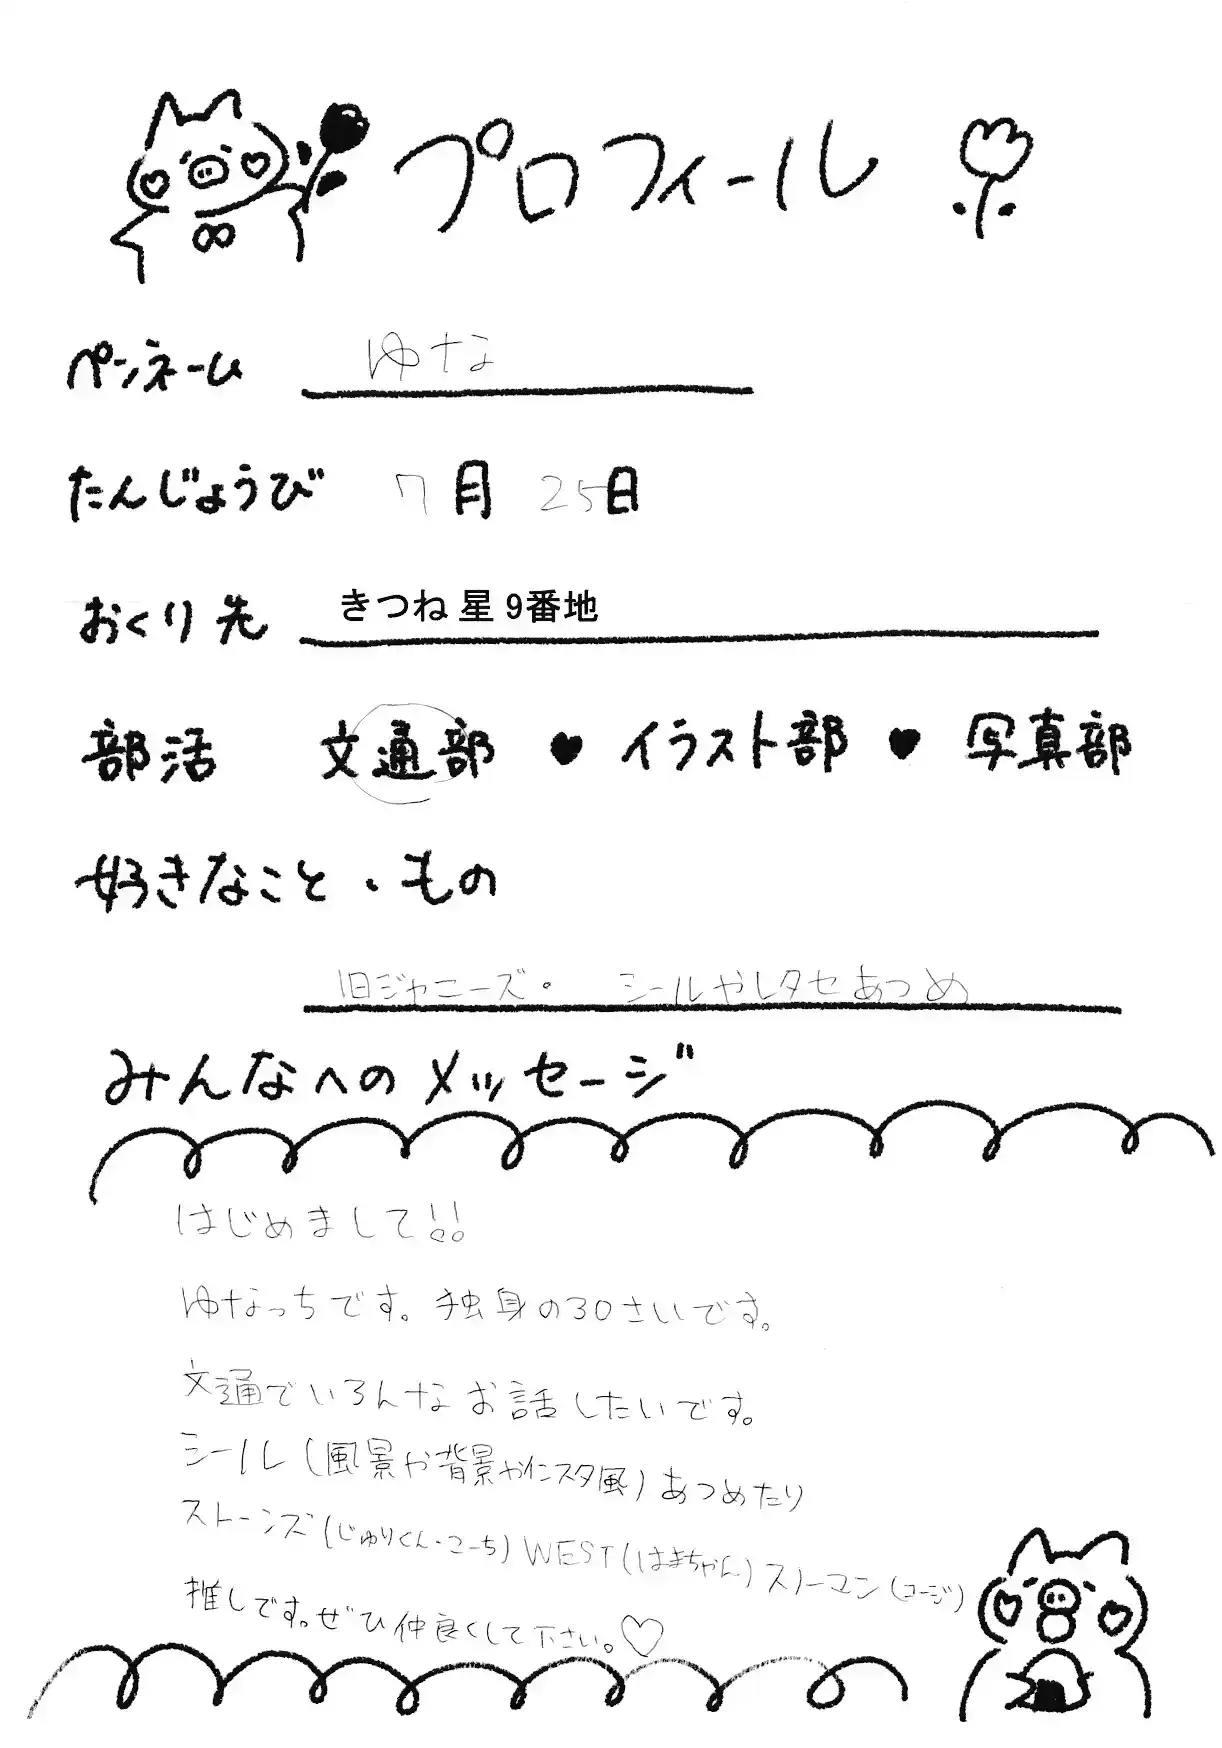 プロフィール
ペンネーム ゆなな
たんじょうび 7月 25日
おくり先 きつね 星 9番地
部活 文通部 ♥ イラスト部 ♥ 写真部
好きなこと・もの
旧ジャニーズ・ シールやレタセあつめ
みんなへのメッセージ
はじめまして!!
ゆなっちです。独身の30さいです。
文通でいろんなお話したいです。
シール(風景や背景やインスタ風)あつめたり
ストーンズ(じゅりくん・こーち)WEST(はまちゃん)スノーマン(コージ)
推しです。ぜひ仲良くして下さい。♡